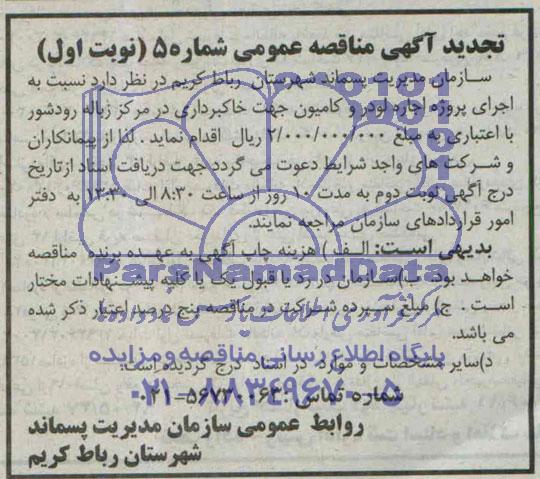 تجدید آگهی مناقصه عمومی شماره۵ (نوبت اول)
سازمان مدیریت پسماند شهرستان رباط کریم در نظر دارد نسبت به
اجرای پروژه اجاره لودر و کامیون جهت خاکبرداری در مرکز زباله رودشور
با اعتباری به مبلغ ۲/۰۰۰/۰۰۰/۰۰۰ ریال اقدام نماید . لذا از پیمانکاران
و شرکت های واجد شرایط دعوت می گردد جهت دریافت اسناد ازتاریخ
درج آگهی نوبت دوم به مدت ۱۰ روز از ساعت ۸:۳۰ الی ۱۳:۳۰ به دفتر
امور قراردادهای سازمان مراجعه نمایند.
بدیهی است: الف) هزینه چاپ آگهی به عهده برنده مناقصه
خواهد بود. ب)سازمان در رد یا قبول یک یا کلیه پیشنهادات مختار
است . ج) مبلغ سپرده شرکت در مناقصه پنج درصد اعتبار ذکر شده
می باشد.
ParsNamadData
پایگاه اطلاع رسانی مناقصه و مزایده
د)سایر مشخصات و موارد در اسناد درج گردیده است.
شماره تماس :
۰۲۱-۸۸۳۴۹۶۷۰-۵
روابط عمومی سازمان مدیریت پسماند
شهرستان رباط کریم